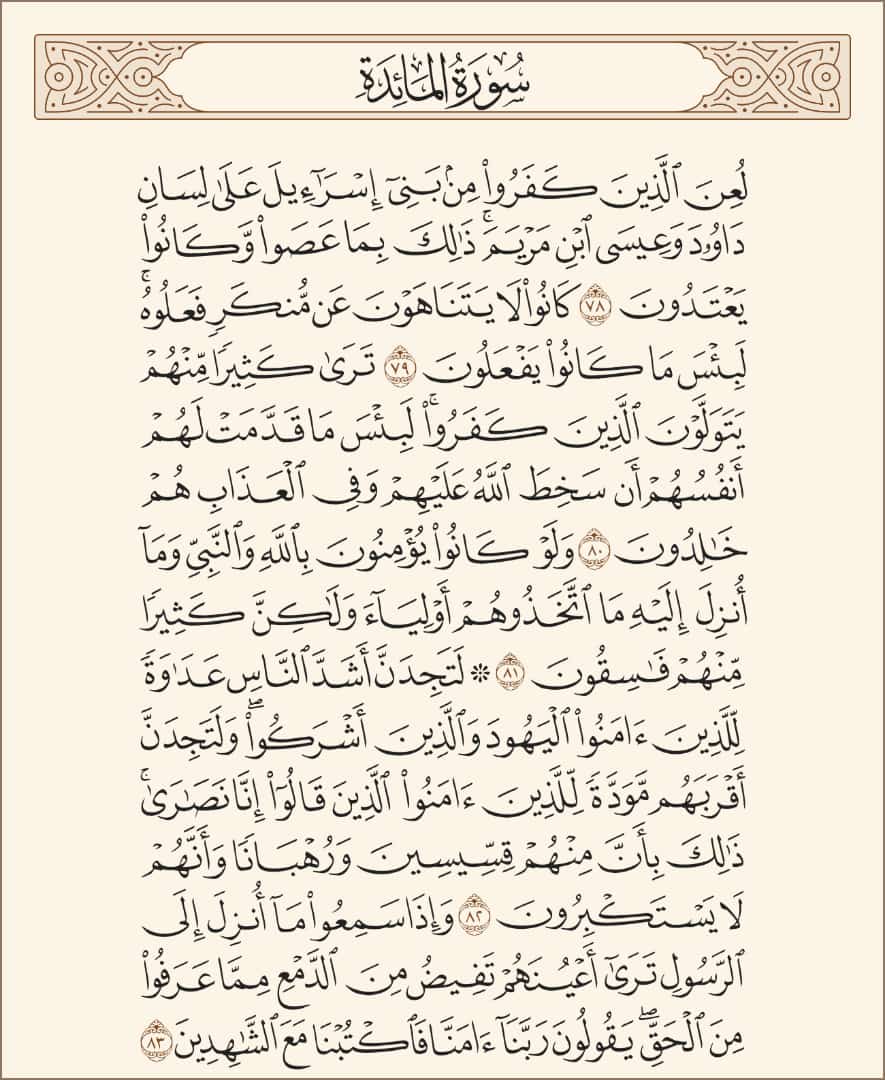 سُورَةُ المَائِدَةِ
لُعِنَ ٱلَّذِينَ كَفَرُوا۟ مِنۢ بَنِىٓ إِسْرَٰٓءِيلَ عَلَىٰ لِسَانِ
دَاوُۥدَ وَعِيسَى ٱبْنِ مَرْيَمَ ۚ ذَٰلِكَ بِمَا عَصَوا۟ وَّكَانُوا۟
يَعْتَدُونَ ٧٨ كَانُوا۟ لَا يَتَنَاهَوْنَ عَن مُّنكَرٍ فَعَلُوهُ ۚ
لَبِئْسَ مَا كَانُوا۟ يَفْعَلُونَ ٧٩ تَرَىٰ كَثِيرًا مِّنْهُمْ
يَتَوَلَّوْنَ ٱلَّذِينَ كَفَرُوا۟ ۚ لَبِئْسَ مَا قَدَّمَتْ لَهُمْ
أَنفُسُهُمْ أَن سَخِطَ ٱللَّهُ عَلَيْهِمْ وَفِى ٱلْعَذَابِ هُمْ
خَٰلِدُونَ ٨٠ وَلَوْ كَانُوا۟ يُؤْمِنُونَ بِٱللَّهِ وَٱلنَّبِىِّ وَمَآ
أُنزِلَ إِلَيْهِ مَا ٱتَّخَذُوهُمْ أَوْلِيَآءَ وَلَٰكِنَّ كَثِيرًا
مِّنْهُمْ فَٰسِقُونَ ٨١ ۞ لَتَجِدَنَّ أَشَدَّ ٱلنَّاسِ عَدَٰوَةً
لِّلَّذِينَ ءَامَنُوا۟ ٱلْيَهُودَ وَٱلَّذِينَ أَشْرَكُوا۟ ۖ وَلَتَجِدَنَّ
أَقْرَبَهُم مَّوَدَّةً لِّلَّذِينَ ءَامَنُوا۟ ٱلَّذِينَ قَالُوٓا۟ إِنَّا نَصَٰرَىٰ ۚ
ذَٰلِكَ بِأَنَّ مِنْهُمْ قِسِّيسِينَ وَرُهْبَانًا وَأَنَّهُمْ
لَا يَسْتَكْبِرُونَ ٨٢ وَإِذَا سَمِعُوا۟ مَآ أُنزِلَ إِلَى
ٱلرَّسُولِ تَرَىٰٓ أَعْيُنَهُمْ تَفِيضُ مِنَ ٱلدَّمْعِ مِمَّا عَرَفُوا۟
مِنَ ٱلْحَقِّ ۖ يَقُولُونَ رَبَّنَآ ءَامَنَّا فَٱكْتُبْنَا مَعَ ٱلشَّٰهِدِينَ ٨٣